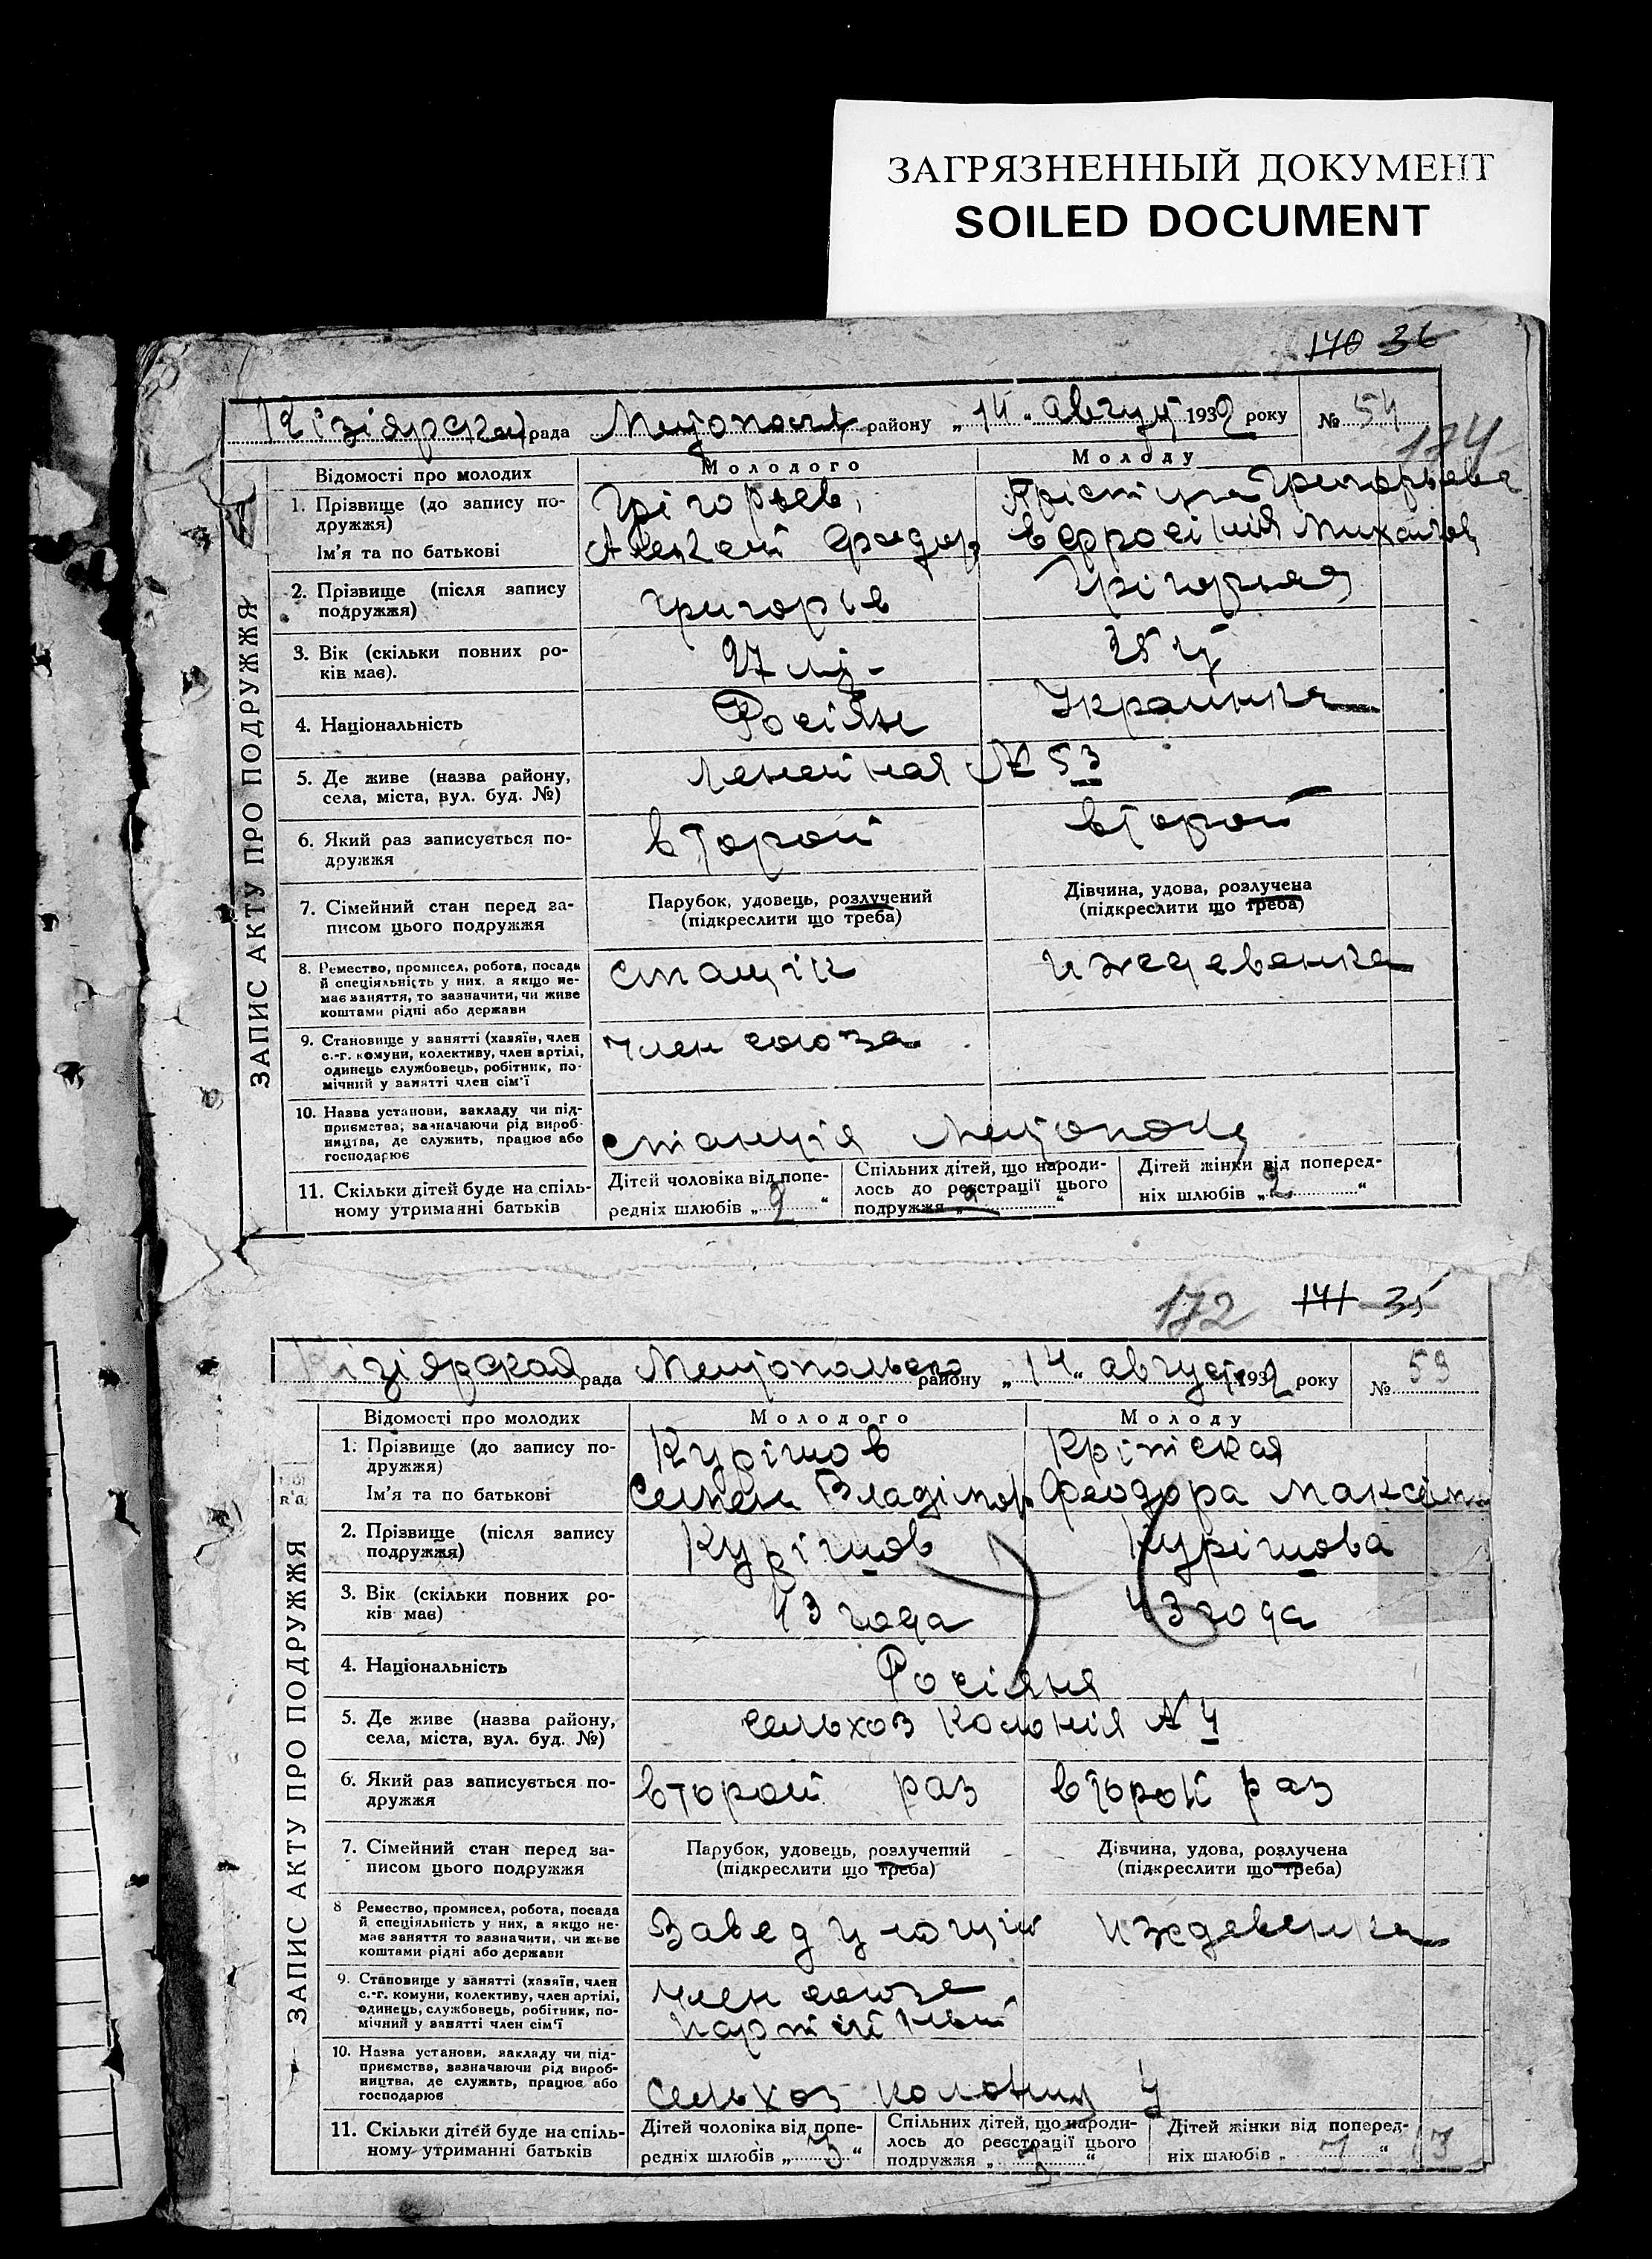 ЗАГРЯЗНЕННЫЙ ДОКУМЕНТ
SOILED DOCUMENT
140 36
Кізіярская рада район у „14„ август 1932 року № 54
174
ЗАПИС АКТУ ПРО ПОДРУЖЖЯ
Відомості про молодих Молодого Молоду
1. Прізвище (до запису по-
дружжя)
Грігорьев,
Ім'я та по батькові
Алексей Федор Евфросінія Михайлов
2. Прізвище (після запису
подружжя)
Григорьев
3. Вік (скільки повних ро-
ків має).
27 25
4. Національність
Українка
5. Де живе (назва району,
села, міста, вул. буд. №)
№ 53
6. Який раз записується по-
дружжя
второй второй
7. Сімейний стан перед за-
писом цього подружжя
Парубок, удовець, розлучений
(підкреслити що треба)
Дівчина, удова, розлучена
(підкреслити що треба)
8. Ремество, промисел, робота, посада
й спеціяльність у них, а якщо не-
має заняття, то зазначити, чи живе
коштами рідні або держави
иждевенка
9. Становище у занятті (хазяїн, член
с.-г. комуни, колективу, член артілі,
одинець службовець, робітник, по-
мічний у занятті член сім'ї
член союза
10. Назва установи, закладу чи під-
приємства, зазначаючи рід вироб-
ництва, де служить, працює або
господарює
станція
11. Скільки дітей буде на спіль-
ному утриманні батьків
Дітей чоловіка від попе-
редніх шлюбів „ “
Спільних дітей, що народи-
лось до реєстрації цього
подружжя „ “
Дітей жінки від поперед-
ніх шлюбів „ “
172 141 35
Кізіярская рада Мелітопольского району „14„ август 1932 року № 59
ЗАПИС АКТУ ПРО ПОДРУЖЖЯ
Відомості про молодих Молодого Молоду
1. Прізвище (до запису по-
дружжя)
Курішов Крітская
Ім'я та по батькові
Семен Владімір Феодора Максім
2. Прізвище (після запису
подружжя)
Курішов Курішова
3. Вік (скільки повних ро-
ків має)
43 года 43 года
4. Національність
Росіяня
5. Де живе (назва району,
села, міста, вул. буд. №)
сельхоз Колонія № 4
6. Який раз записується по-
дружжя
второй раз второй раз
7. Сімейний стан перед за-
писом цього подружжя
Парубок, удовець, розлучений
(підкреслити що треба)
Дівчина, удова, розлучена
(підкреслити що треба)
8 Ремество, промисел, робота, посада
й спеціяльність у них, а якщо не-
має заняття то зазначити, чи живе
коштами рідні або держави
Заведующій иждевенка
9. Становище у занятті (хазяїн, член
с.-г. комуни, колективу, член артілі,
одинець, службовець, робітник, по-
мічний у занятті член сім'ї
член союза
партійный
10. Назва установи, закладу чи під-
приємства, зазначаючи рід вироб-
ництва, де служить, працює або
господарює
сельхоз колония 4
11. Скільки дітей буде на спіль-
ному утриманні батьків
Дітей чоловіка від попе-
редніх шлюбів „ 3 “
Спільних дітей, що народи-
лось до реєстрації цього
подружжя „ “
Дітей жінки від поперед-
ніх шлюбів „ “